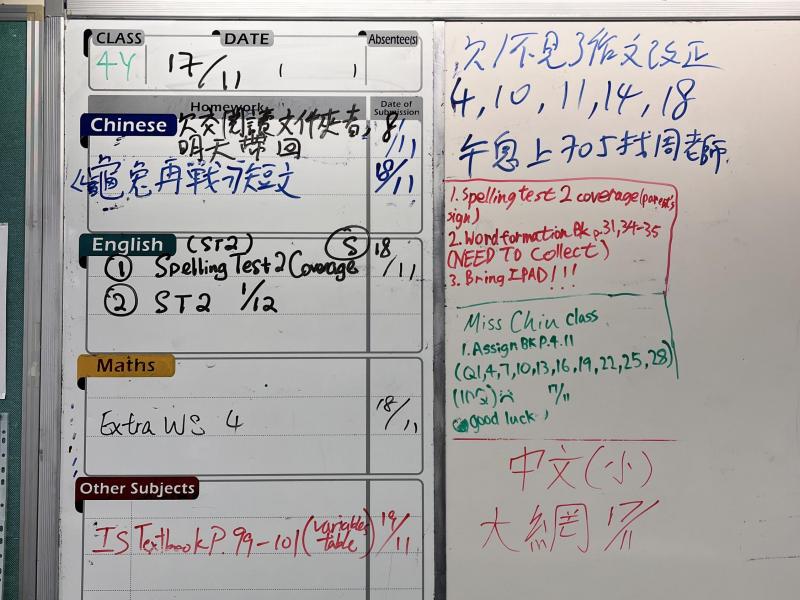 CLASS DATE Absentee(s)
4Y 17/11 ( )
Homework Date of Submission
Chinese 欠交閱讀文件夾者, 8/11
明天帶回
龜兔再戰 短文 18/11
English (ST2) S 18/11
① Spelling Test 2 Coverage
② ST2 1/12
Maths
Extra WS 4 18/11
Other Subjects
IS Textbook P. 99-101 (variables table) 19/11
欠/不見了作文改正
4, 10, 11, 14, 18
午息上705找周老師.
1. Spelling test 2 coverage (parent's
sign)
2. Word formation BK p.31,34-35
(NEED TO collect)
3. Bring IPAD!!!
Miss Chiu class
1. Assign BK P.4.11
(Q1,4,7,10,13,16,19,22,25,28)
(10Q) 17/11
good luck
中文(小)
大網 17/11